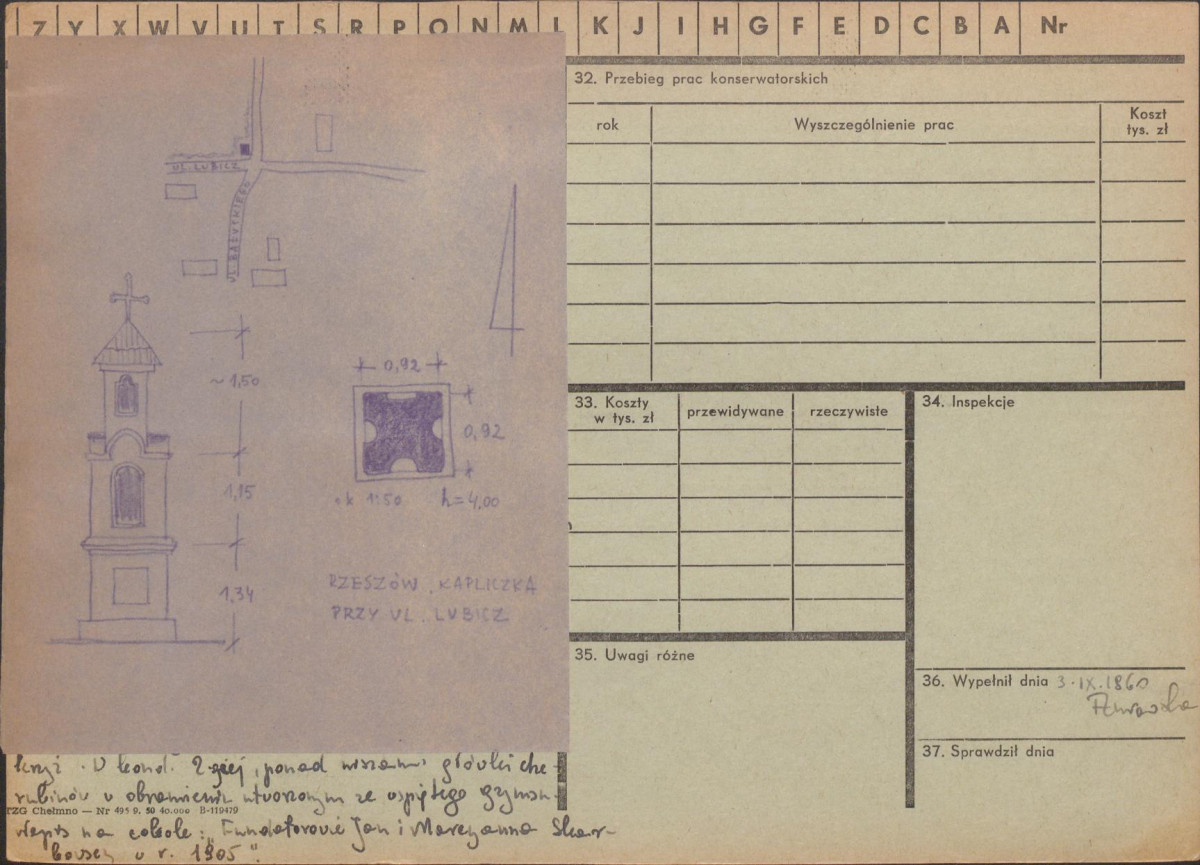 Z Y X W V U T S R P O N M L K J I H G F E D C B A Nr
UL. LUBICZ
UL.
~1,50
1,15
1,34
0,92
0,92
1:50 h=4,00
RZESZÓW. KAPLICZKA
PRZY UL. LUBICZ
32. Przebieg prac konserwatorskich
rok
Wyszczególnienie prac
Koszt
tys. zł
33. Koszty
w tys. zł
przewidywane
rzeczywiste
34. Inspekcje
35. Uwagi różne
36. Wypełnił dnia 3.IX.1860
37. Sprawdził dnia
krzyż. W kond. 2-giej, ponad niszami główki che-
rubinów w obramieniu utworzonym ze wspiętego gzymsu
TZG Chełmno — Nr 495 9. 50 40.000 B-119479
Napis na cokole: „Fundatorowie Jan i Maryanna Skar-
w r. 1905".